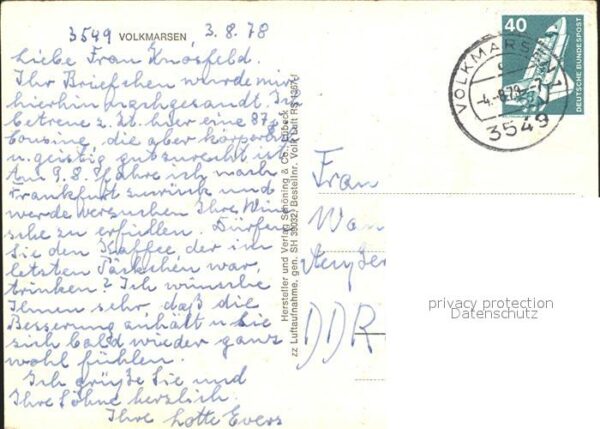 3549 VOLKMARSEN, 3.8.78
Liebe Frau Knosfeld.
Ihr Briefchen wurde mir
hierhin nachgesandt. Ich
betreue z. Zt. hier eine 87j.
Cousine, die aber körperlich
u. geistig gut zurecht ist.
Am 9.8. fahre ich nach
Frankfurt zurück und
werde versuchen Ihre Wün
sche zu erfüllen. Dürfen
Sie den Kaffee, der im
letzten Päckchen war,
trinken? Ich wünsche
Ihnen sehr, daß die
Besserung anhält u. Sie
sich bald wieder ganz
wohl fühlen.
Ich grüße Sie und
Ihre Söhne herzlich.
Ihre Lotte Evers
Hersteller und Verlag Schöning & Co., Lübeck
zz Luftaufnahme, gen. SH 390/32/ Bestellnr. Volk Luft RS
40
DEUTSCHE BUNDESPOST
VOLKMARSEN 1
3549
Frau
Wan
DDR
privacy protection
Datenschutz